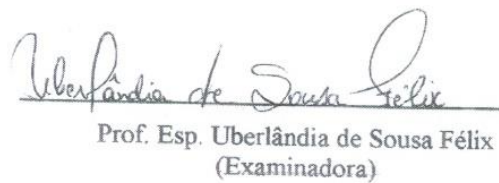 Uberlândia de Sousa Félix
Prof. Esp. Uberlândia de Sousa Félix
(Examinadora)